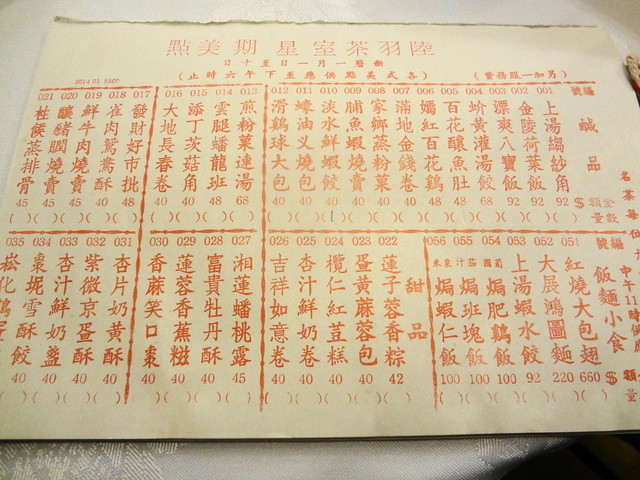 陸羽茶室星期美點
新曆一月一日至十日
(各式美點供應至下午六時止)
(另加一服務費)
2014 01 #500
編號 鹹品 $ 金額 數量
001 上湯縐紗角 92 ( )
002 金陵荷葉飯 92 ( )
003 漂爽八寶飯 92 ( )
004 蚧黃灌湯餃 68 ( )
005 百花釀魚肚 48 ( )
006 嫣紅百花鷄 48 ( )
007 滿地金錢卷 40 ( )
008 家鄉蒸粉菓 40 ( )
009 脯魚蝦燒賣 40 ( )
010 淡水鮮蝦餃 40 ( )
011 蠔油义燒包 40 ( )
012 滑鷄球大包 40 ( )
013 煎粉菓連湯 68 ( )
014 雲腿蟠龍班 48 ( )
015 添丁茨菇角 40 ( )
016 大地長春卷 40 ( )
017 發財好市批 48 ( )
018 崔肉鴛鴦酥 40 ( )
019 鮮牛肉燒賣 40 ( )
020 釀豬膶燒賣 45 ( )
021 桂侯蒸排骨 45 ( )
編號 飯麵小食 $ 額 量
051 紅燒大包翅 660 ( )
052 大展鴻圖麵 220 ( )
053 上湯蝦水餃 92 ( )
054 葡國焗肥鷄飯 100 ( )
055 茄汁焗班塊飯 100 ( )
056 粟米焗蝦仁飯 100 ( )
甜品
022 蓮子蓉香粽 42 ( )
023 蛋黃蔴蓉包 40 ( )
024 欖仁紅荳糕 40 ( )
025 杏汁鮮奶卷 40 ( )
026 吉祥如意卷 40 ( )
027 湘蓮蟠桃露 45 ( )
028 富貴牡丹酥 40 ( )
029 蓮蓉香蕉糍 40 ( )
030 香蔴笑口棗 40 ( )
031 杏片奶黃酥 40 ( )
032 紫微京蛋酥 40 ( )
033 杏汁鮮奶盞 40 ( )
034 棗坭雪酥 40 ( )
035 崧化鷄蛋餃 40 ( )